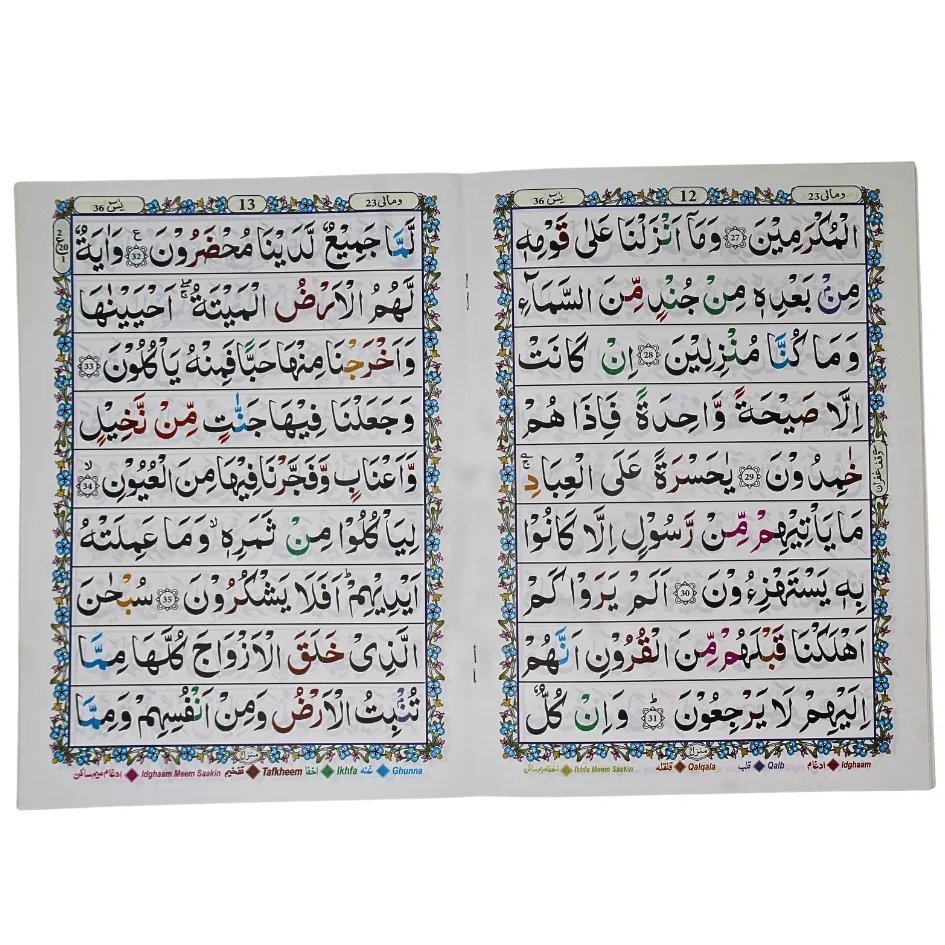 ومالی 23
12
یٰسٓ 36
الْمُكْرَمِیْنَ 27 وَمَاۤ اَنْزَلْنَا عَلٰی قَوْمِهٖ
مِنْۢ بَعْدِهٖ مِنْ جُنْدٍ مِّنَ السَّمَآءِ
وَمَا كُنَّا مُنْزِلِیْنَ 28 اِنْ كَانَتْ
اِلَّا صَیْحَةً وَّاحِدَةً فَاِذَا هُمْ
خٰمِدُوْنَ 29 یٰحَسْرَةً عَلَی الْعِبَادِ ۚ
وقف غفران
مَا یَاْتِیْهِمْ مِّنْ رَّسُوْلٍ اِلَّا كَانُوْا
بِهٖ یَسْتَهْزِءُوْنَ 30 اَلَمْ یَرَوْا كَمْ
اَهْلَكْنَا قَبْلَهُمْ مِّنَ الْقُرُوْنِ اَنَّهُمْ
اِلَیْهِمْ لَا یَرْجِعُوْنَ ؕ 31 وَاِنْ كُلٌّ
منزل
Idghaam ادغام Qalb قلب Qalqala قلقله Ikhfa Meem Saakin اخفا میم ساکن
ومالی 23
13
یٰسٓ 36
لَّمَّا جَمِیْعٌ لَّدَیْنَا مُحْضَرُوْنَ ع 32 وَاٰیَةٌ
2
20
1
لَّهُمُ الْاَرْضُ الْمَیْتَةُ ۖۚ اَحْیَیْنٰهَا
وَاَخْرَجْنَا مِنْهَا حَبًّا فَمِنْهُ یَاْكُلُوْنَ 33
وَجَعَلْنَا فِیْهَا جَنّٰتٍ مِّنْ نَّخِیْلٍ
وَّاَعْنَابٍ وَّفَجَّرْنَا فِیْهَا مِنَ الْعُیُوْنِ ۙ 34
لِیَاْكُلُوْا مِنْ ثَمَرِهٖ ۙ وَمَا عَمِلَتْهُ
اَیْدِیْهِمْ ؕ اَفَلَا یَشْكُرُوْنَ 35 سُبْحٰنَ
الَّذِیْ خَلَقَ الْاَزْوَاجَ كُلَّهَا مِمَّا
تُنْۢبِتُ الْاَرْضُ وَمِنْ اَنْفُسِهِمْ وَمِمَّا
منزل
Ghunna غنه Ikhfa اخفا Tafkheem تفخیم Idghaam Meem Saakin ادغام میم ساکن